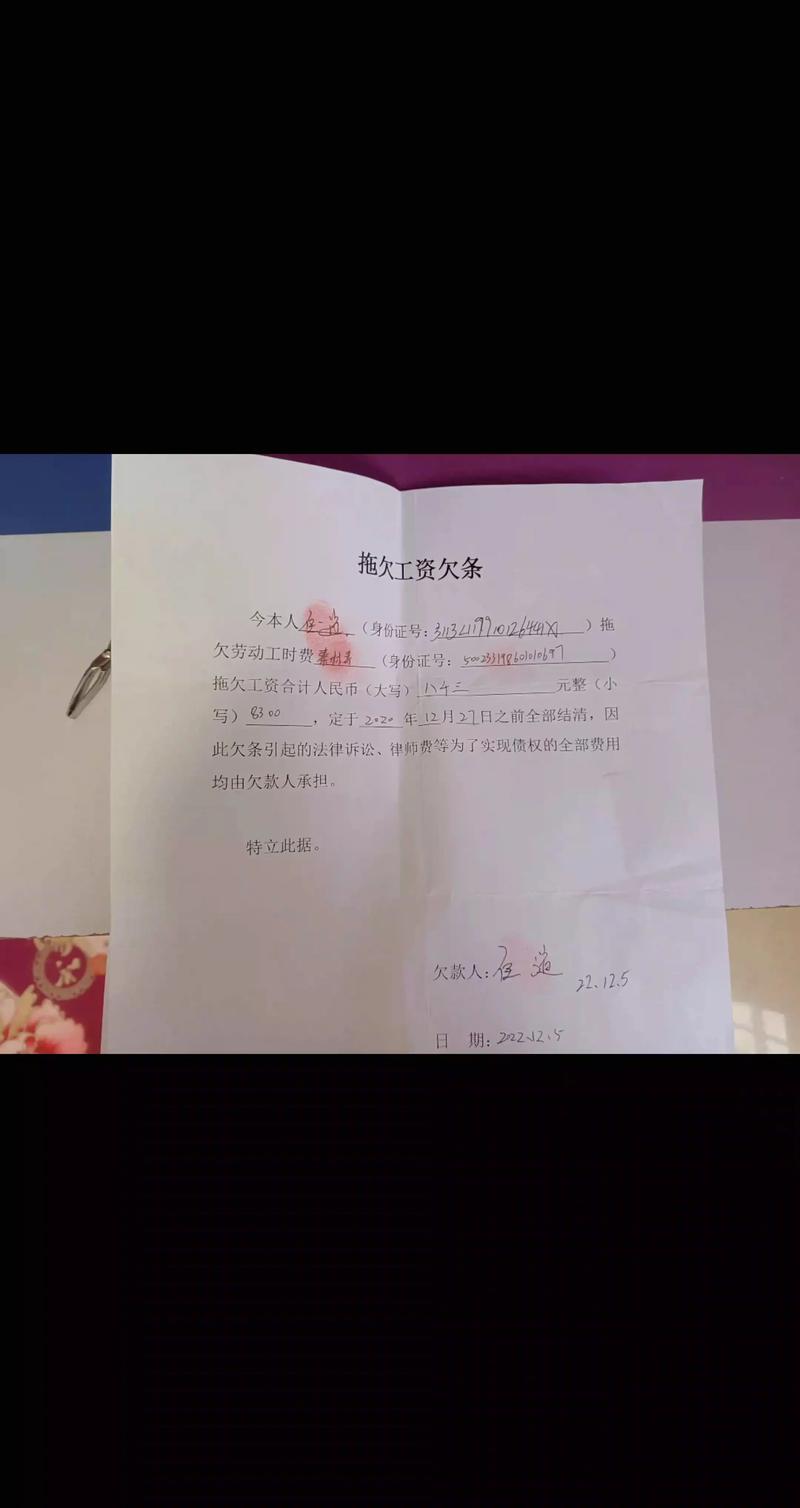 拖欠工资欠条
今本人（身份证号：）拖
欠劳动工时费（身份证号：500233198601010697）
拖欠工资合计人民币（大写）八千三元整（小
写）8300，定于2020年12月27日之前全部结清，因
此欠条引起的法律诉讼、律师费等为了实现债权的全部费用
均由欠款人承担。
特立此据。
欠款人：
22.12.5
日 期：2022.12.5